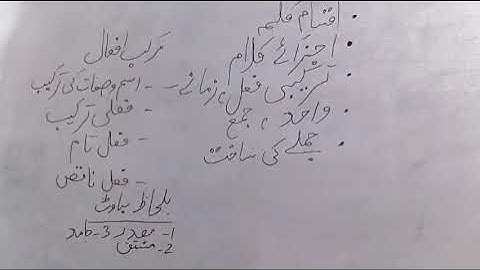 اقسام کلمہ
اجزائے کلام
ترکیبی فعل، زمانے
واحد، جمع
جملے کی ساخت
مرکب افعال
- اسم وصفات کی ترکیب
- فعلی ترکیب
- فعل تام
- فعل ناقص
بلحاظ بناوٹ
1- مصدر 3- جامد
2- مشتق